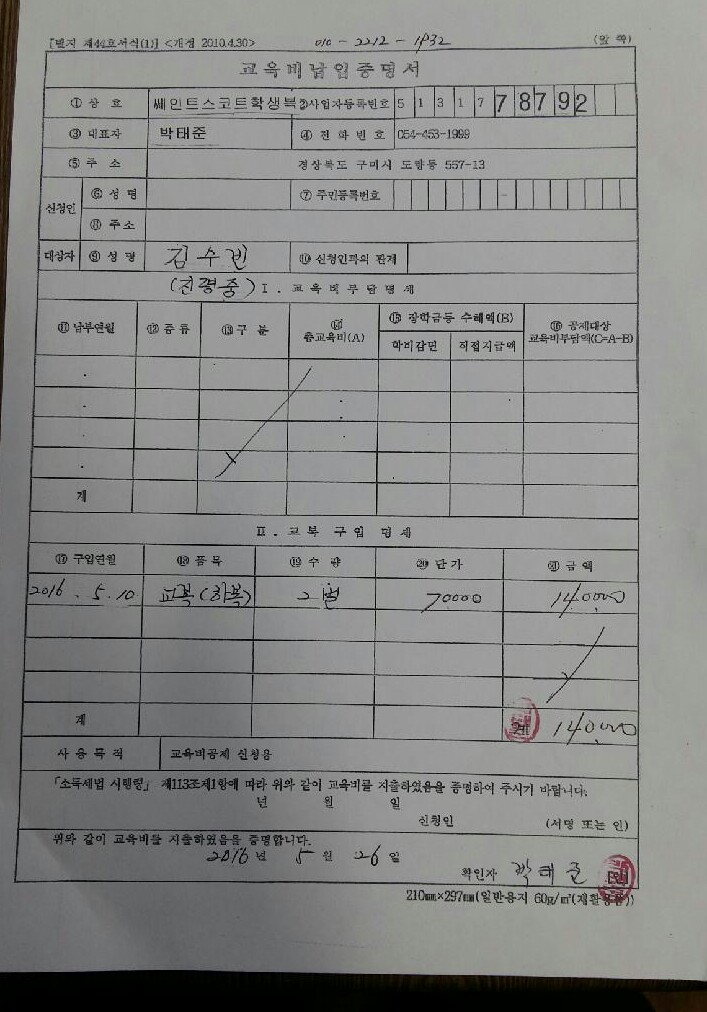 [별지 제44호서식(1)] <개정 2010.4.30> 010-2212-1932 (앞 쪽)
교육비납입증명서
① 상 호 쎄인트스코트학생복 ②사업자등록번호 5 1 3 1 7 7 8 7 9 2
③ 대표자 박태준 ④ 전 화 번 호 054-453-1999
⑤ 주 소 경상북도 구미시 도량동 557-13
신청인 ⑥ 성 명 ⑦ 주민등록번호 -
⑧ 주소
대상자 ⑨ 성 명 김수린 ⑩ 신청인과의 관계
(진평중) Ⅰ. 교 육 비 부 담 명 세
⑪ 납부연월 ⑫ 종 류 ⑬ 구 분 ⑭ 총교육비(A) ⑮ 장학금등 수혜액(B) ⑯ 공제대상 교육비부담액(C=A-B)
학비감면 직접지급액
계
Ⅱ. 교 복 구 입 명 세
⑰ 구입연월 ⑱ 품 목 ⑲ 수 량 ⑳ 단 가 ㉑ 금 액
2016 . 5. 10 교복(하복) 2벌 70000 140,000
계 140,000
사 용 목 적 교육비공제 신청용
「소득세법 시행령」 제113조제1항에 따라 위와 같이 교육비를 지출하였음을 증명하여 주시기 바랍니다.
년 월 일
신청인 (서명 또는 인)
위와 같이 교육비를 지출하였음을 증명합니다.
2016 년 5 월 26 일
확인자 박태준
210㎜×297㎜(일반용지 60g/㎡(재활용품))